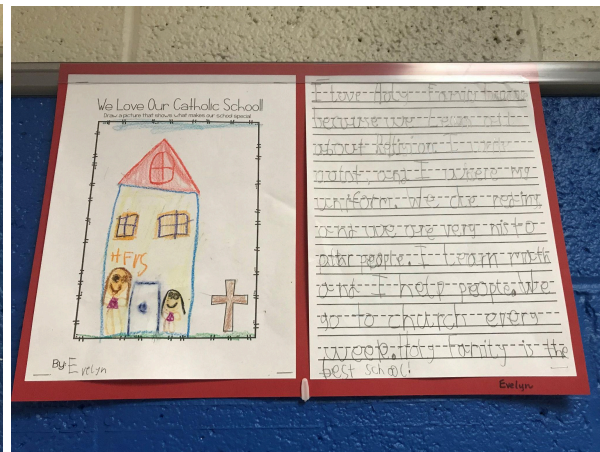 We Love Our Catholic School!
Draw a picture that shows what makes our school special.
HFRS
By: Evelyn
I love Holy Family
because we learn
about
and I where my
uniform. We
and we are very nis to
other people. I learn math
and I help people. We
go to church every
weep. Holy Family is the
best school!
Evelyn